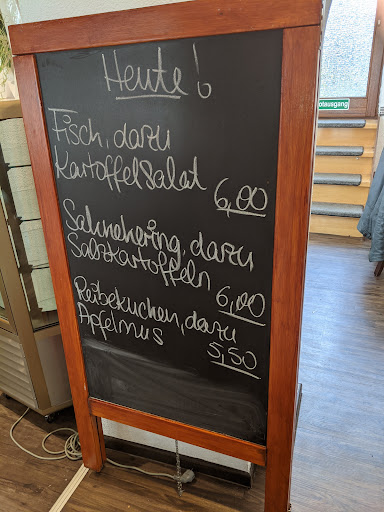 Heute!
Fisch, dazu
Kartoffelsalat
6,00
Sahnehering, dazu
Salzkartoffeln
6,00
Reibekuchen, dazu
Apfelmus
5,50